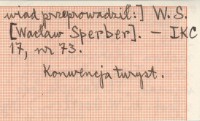 wiad przeprowadził:] W. S.
[Wacław Sperber]. — IKC
17, nr 73.
Konwencja turyst.